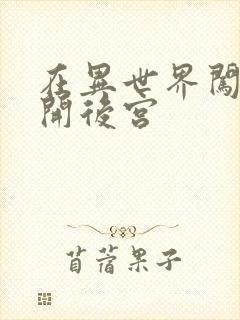 在異世界闖
開後宮
苜蓿果子